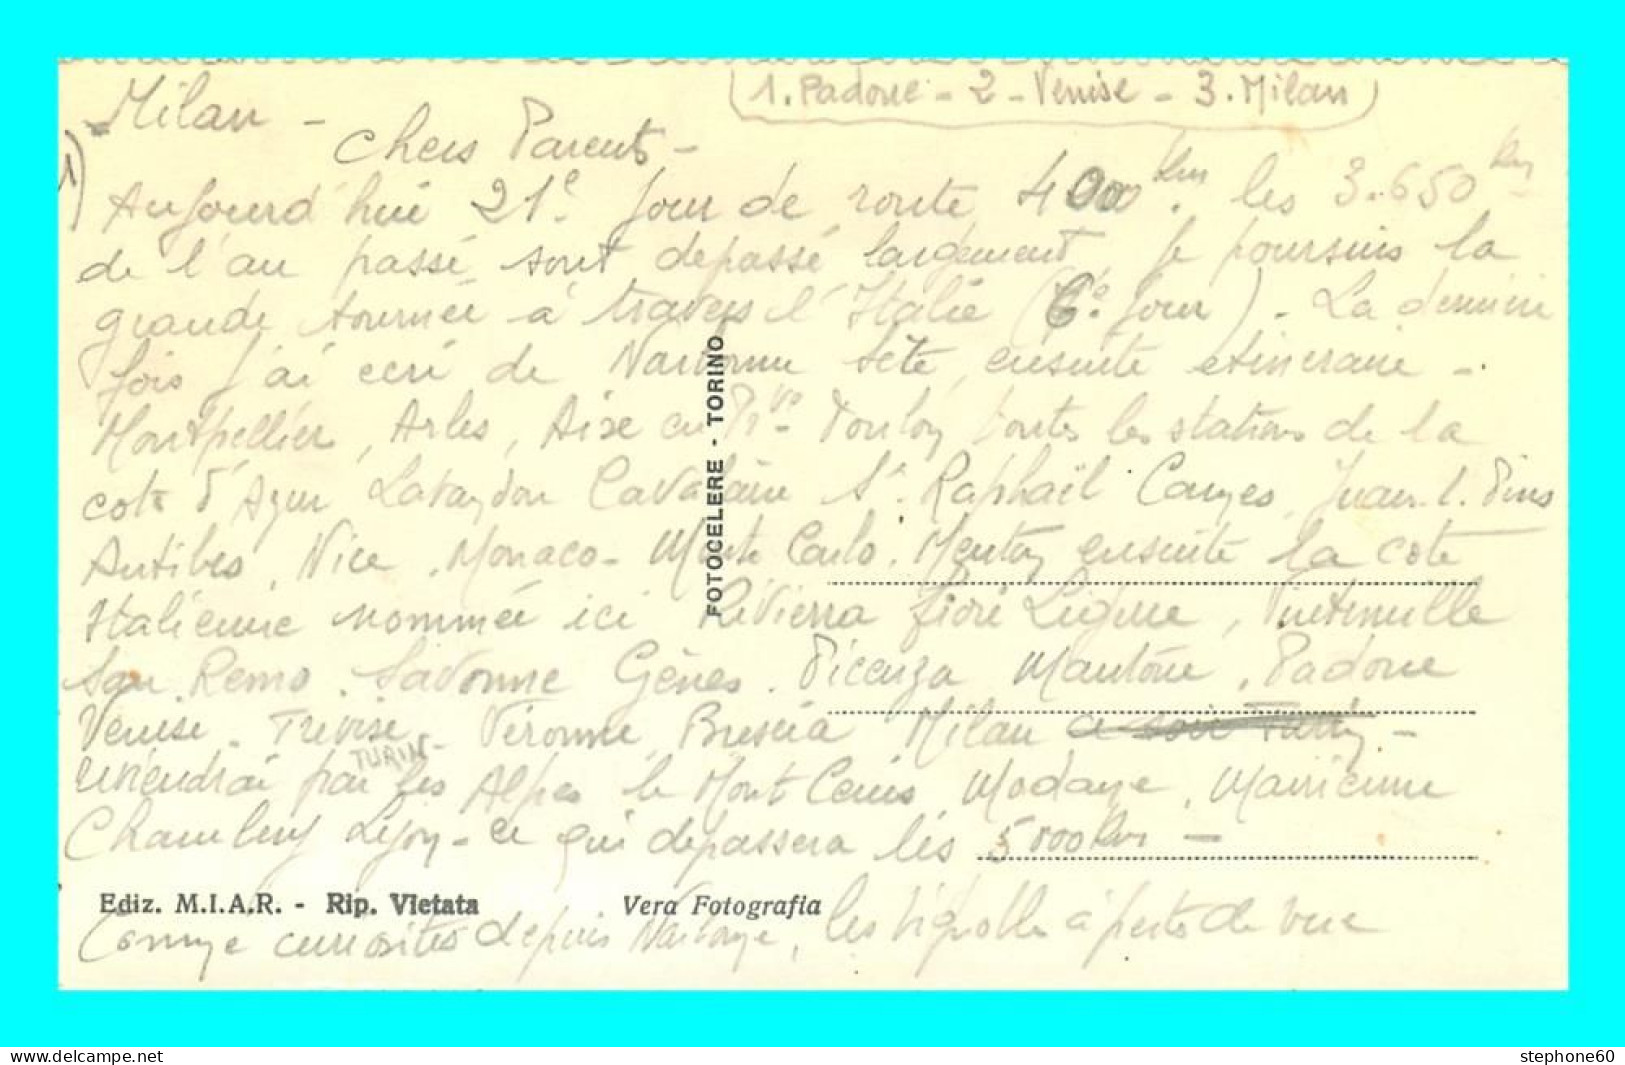 (1. Padoue - 2 - Venise - 3. Milan)
Milan -
1)
Chers Parents -
Aujourd'hui 21e jour de route 4000 km. les 3.650 km
de l'an passé sont depassé largement, je poursuis la
grande tournée à travers l'Italie (6e jour) - La derniere
fois j'ai ecri de Narbonne Sète, ensuite etineraire -
Montpellier, Arles, Aixe en Pr.ve Toulon toutes les stations de la
cote d'Azur Lavandou Cavalaire St. Raphaël Cannes, Juan. l. Pins
Antibes, Nice, Monaco - Monte Carlo. Menton ensuite la cote
Italienne nommée ici Rivierra fiori Ligure, Vintimille
San Remo. Savonne Gênes. Picenza Mantoue, Padoue
Venise - Trevise - Veronne, Brescia Milan ce soir Turin -
TURIN
reviendrai par les Alpes le Mont Cenis, Modane, Maurienne
Chambery Lyon - ce qui depassera les 5000 km -
Ediz. M.I.A.R. - Rip. Vietata
Vera Fotografia
Comme curiosités depuis Narbonne, les vignoble à perte de vue
FOTOCELERE - TORINO
www.delcampe.net
stephone60